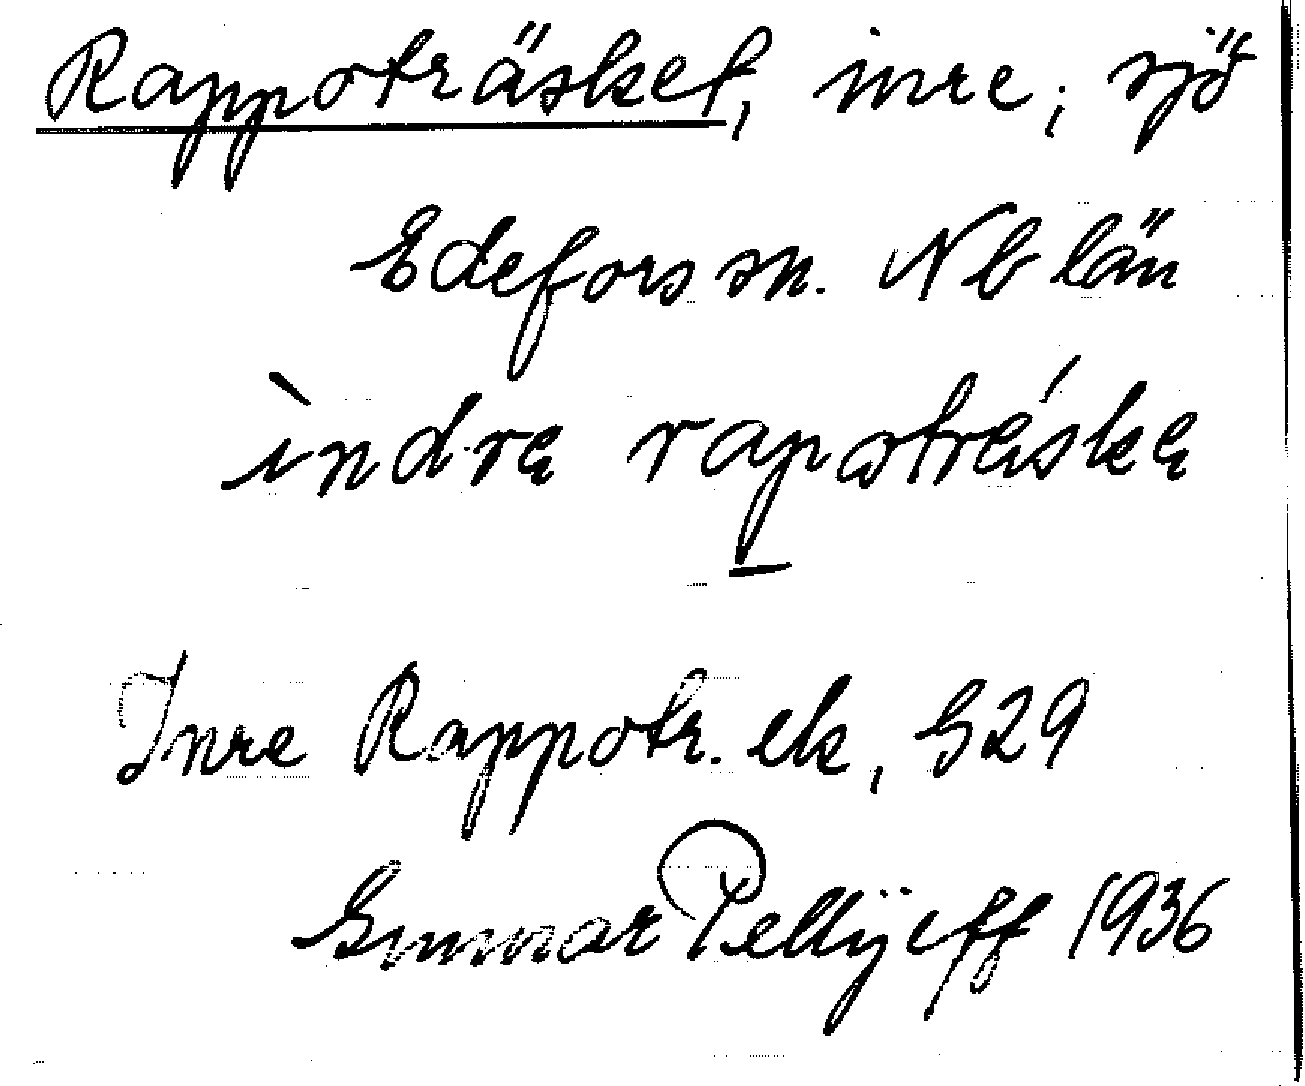 Rappoträsket, inre; sjö
Edefors sn. Nb län
ìndrę rapotrǽskę
Inre Rappotr. ek, G29
Gunnar Pellijeff 1936